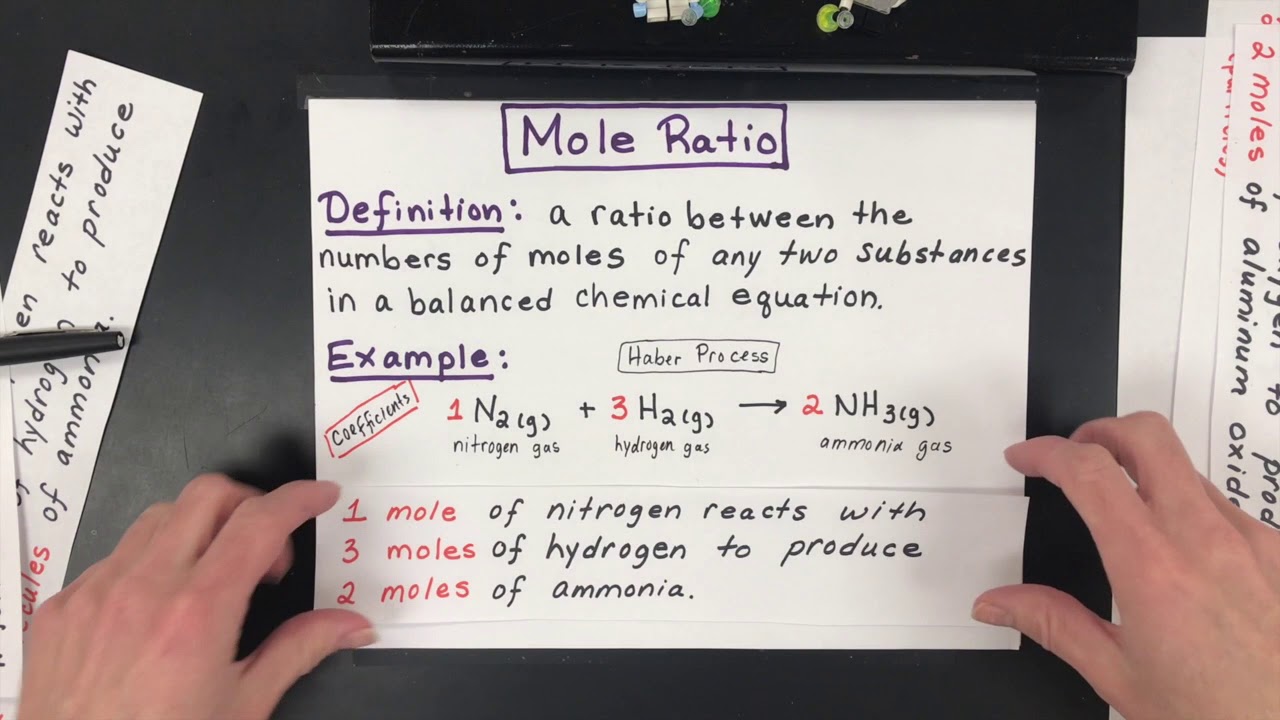 Mole Ratio
Definition: a ratio between the
numbers of moles of any two substances
in a balanced chemical equation.
Example:
Haber Process
Coefficients
1 N2(g) + 3 H2(g) → 2 NH3(g)
nitrogen gas hydrogen gas ammonia gas
1 mole of nitrogen reacts with
3 moles of hydrogen to produce
2 moles of ammonia.
en reacts with
hydrogen to produce
cules of ammonia.
2 moles of aluminum oxide
to prod